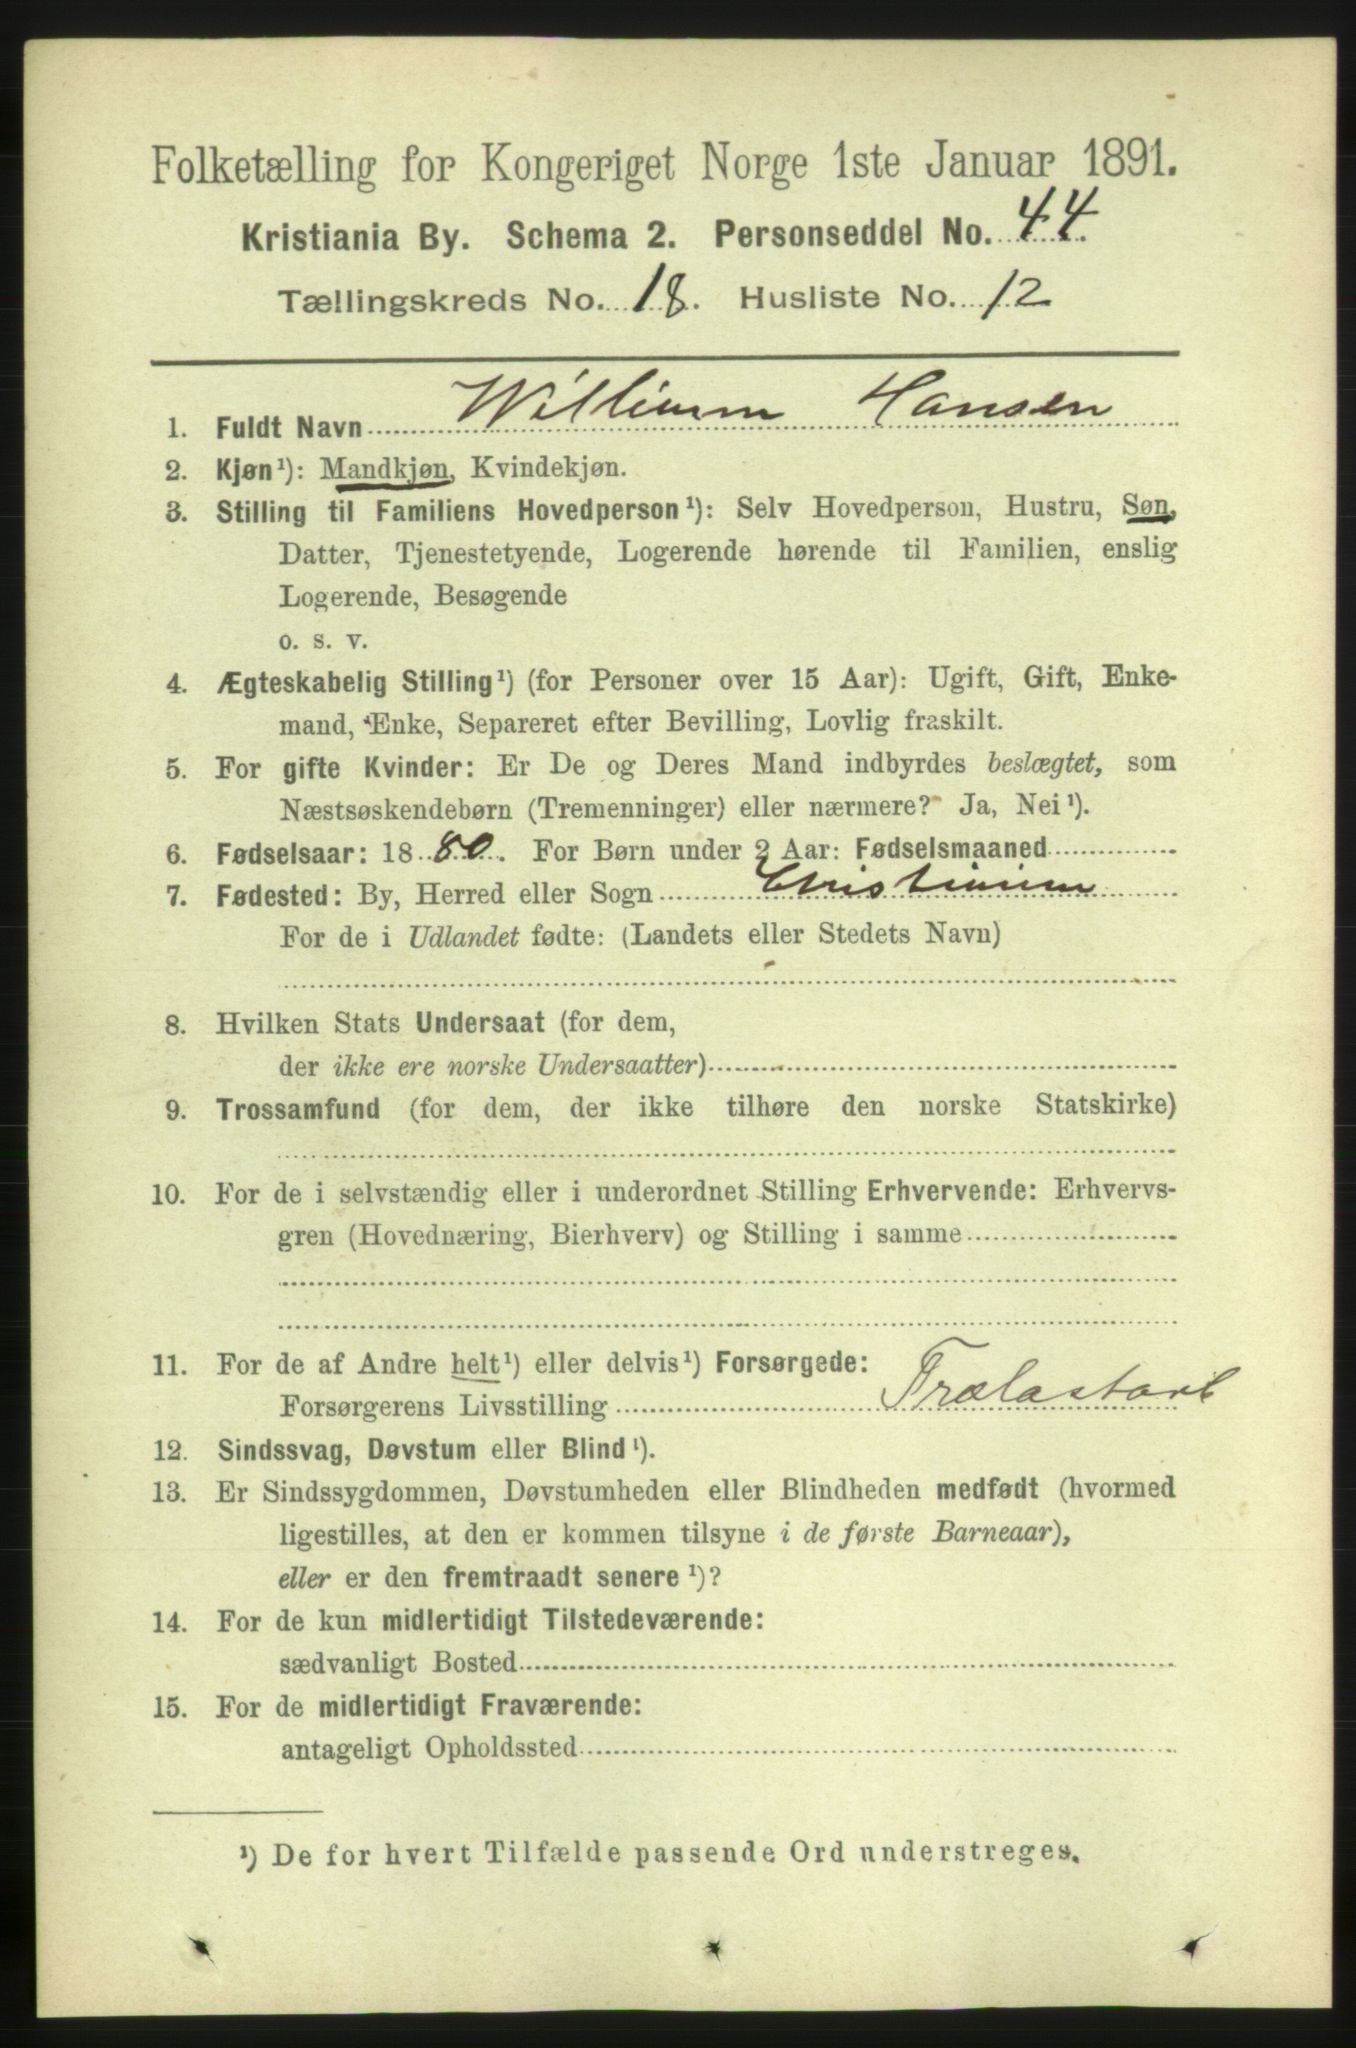 Folketælling for Kongeriget Norge 1ste Januar 1891.
Kristiania By. Schema 2. Personseddel No. 44.
Tællingskreds No. 18. Husliste No. 12
1. Fuldt Navn William Hansen
2. Kjøn¹): Mandkjøn, Kvindekjøn.
3. Stilling til Familiens Hovedperson¹): Selv Hovedperson, Hustru, Søn,
Datter, Tjenestetyende, Logerende hørende til Familien, enslig
Logerende, Besøgende
o. s. v.
4. Ægteskabelig Stilling¹) (for Personer over 15 Aar): Ugift, Gift, Enke-
mand, Enke, Separeret efter Bevilling, Lovlig fraskilt.
5. For gifte Kvinder: Er De og Deres Mand indbyrdes beslægtet, som
Næstsøskendebørn (Tremenninger) eller nærmere? Ja, Nei¹).
6. Fødselsaar: 1880. For Børn under 2 Aar: Fødselsmaaned
7. Fødested: By, Herred eller Sogn Christiania
For de i Udlandet fødte: (Landets eller Stedets Navn)
8. Hvilken Stats Undersaat (for dem,
der ikke ere norske Undersaatter)
9. Trossamfund (for dem, der ikke tilhøre den norske Statskirke)
10. For de i selvstændig eller i underordnet Stilling Erhvervende: Erhvervs-
gren (Hovednæring, Bierhverv) og Stilling i samme
11. For de af Andre helt¹) eller delvis¹) Forsørgede:
Forsørgerens Livsstilling Trælastarb
12. Sindssvag, Døvstum eller Blind¹).
13. Er Sindssygdommen, Døvstumheden eller Blindheden medfødt (hvormed
ligestilles, at den er kommen tilsyne i de første Barneaar),
eller er den fremtraadt senere¹)?
14. For de kun midlertidigt Tilstedeværende:
sædvanligt Bosted
15. For de midlertidigt Fraværende:
antageligt Opholdssted
¹) De for hvert Tilfælde passende Ord understreges.